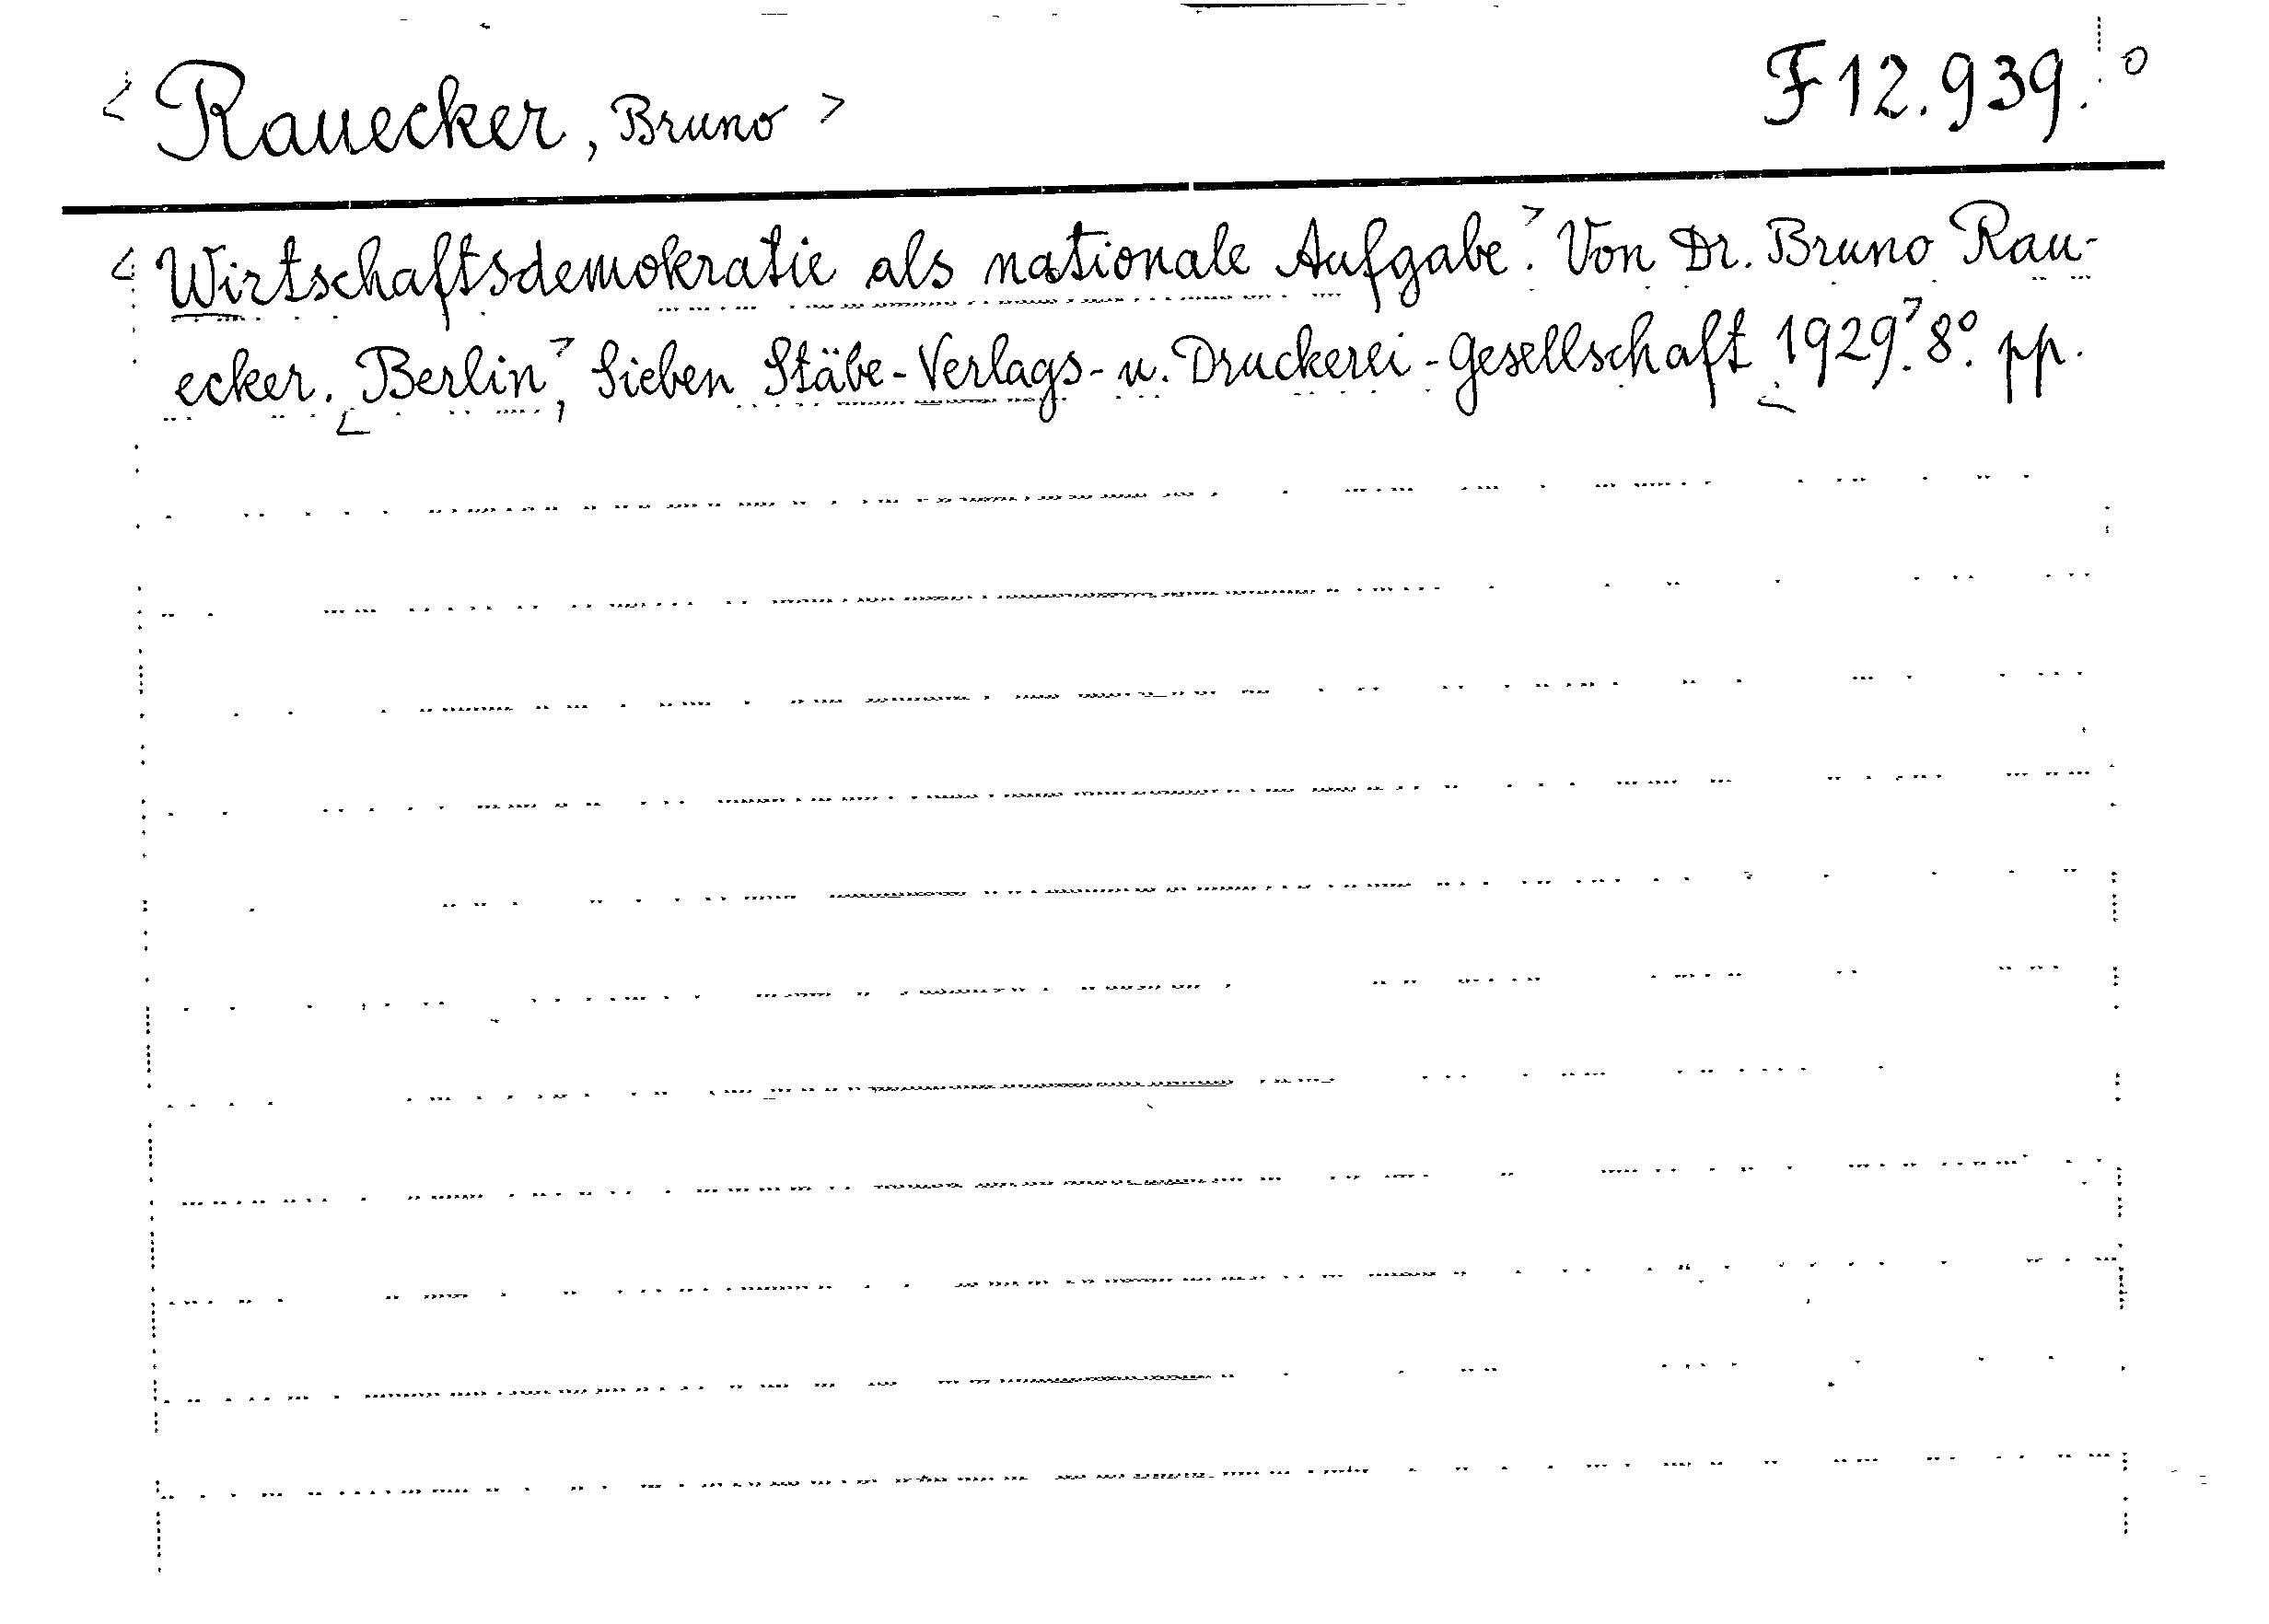 < Rauecker, Bruno > F 12.939. o
< Wirtschaftsdemokratie als nationale Aufgabe.> Von Dr. Bruno Rau-
ecker. <Berlin>, Sieben Stäbe-Verlags- u. Druckerei-Gesellschaft <1929.> 8º. pp.